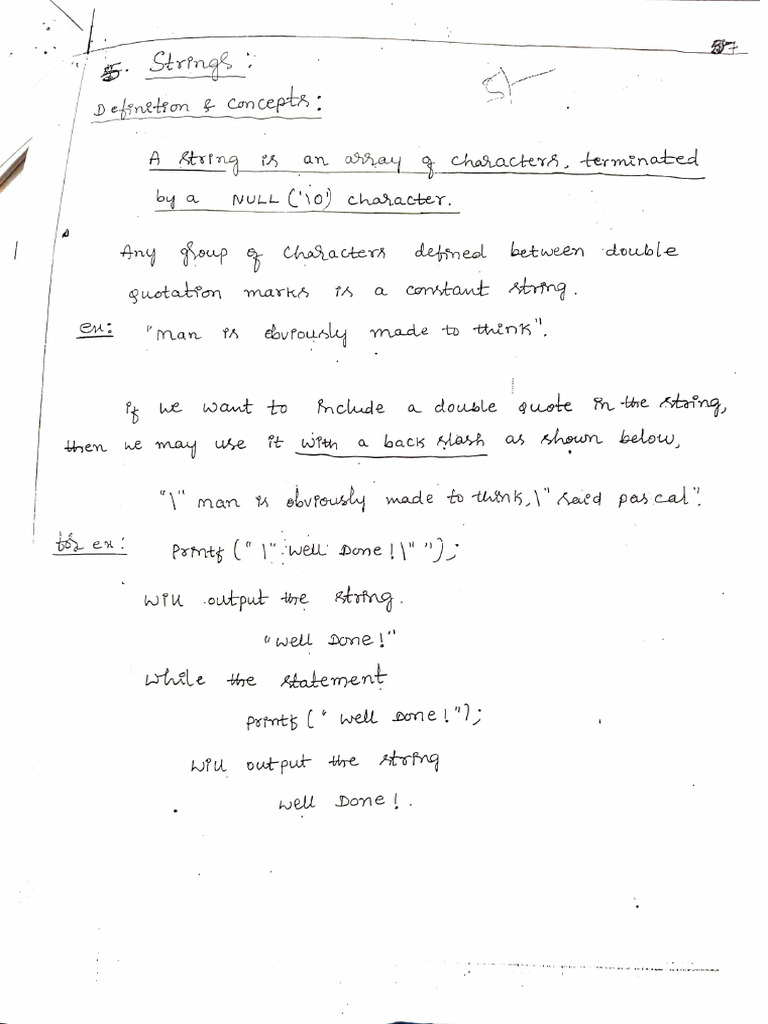 5. Strings:
Definition & concepts:
A string is an array of characters, terminated
by a NULL ('\0') character.
Any group of characters defined between double
quotation marks is a constant string.
ex: "man is obviously made to think".
if we want to include a double quote in the string,
then we may use it with a back slash as shown below,
"\" man is obviously made to think,\" said pascal".
for ex: printf (" \" well Done!\" ");
will output the string.
"well Done!"
while the statement
printf (" well Done!");
will output the string
well Done!.